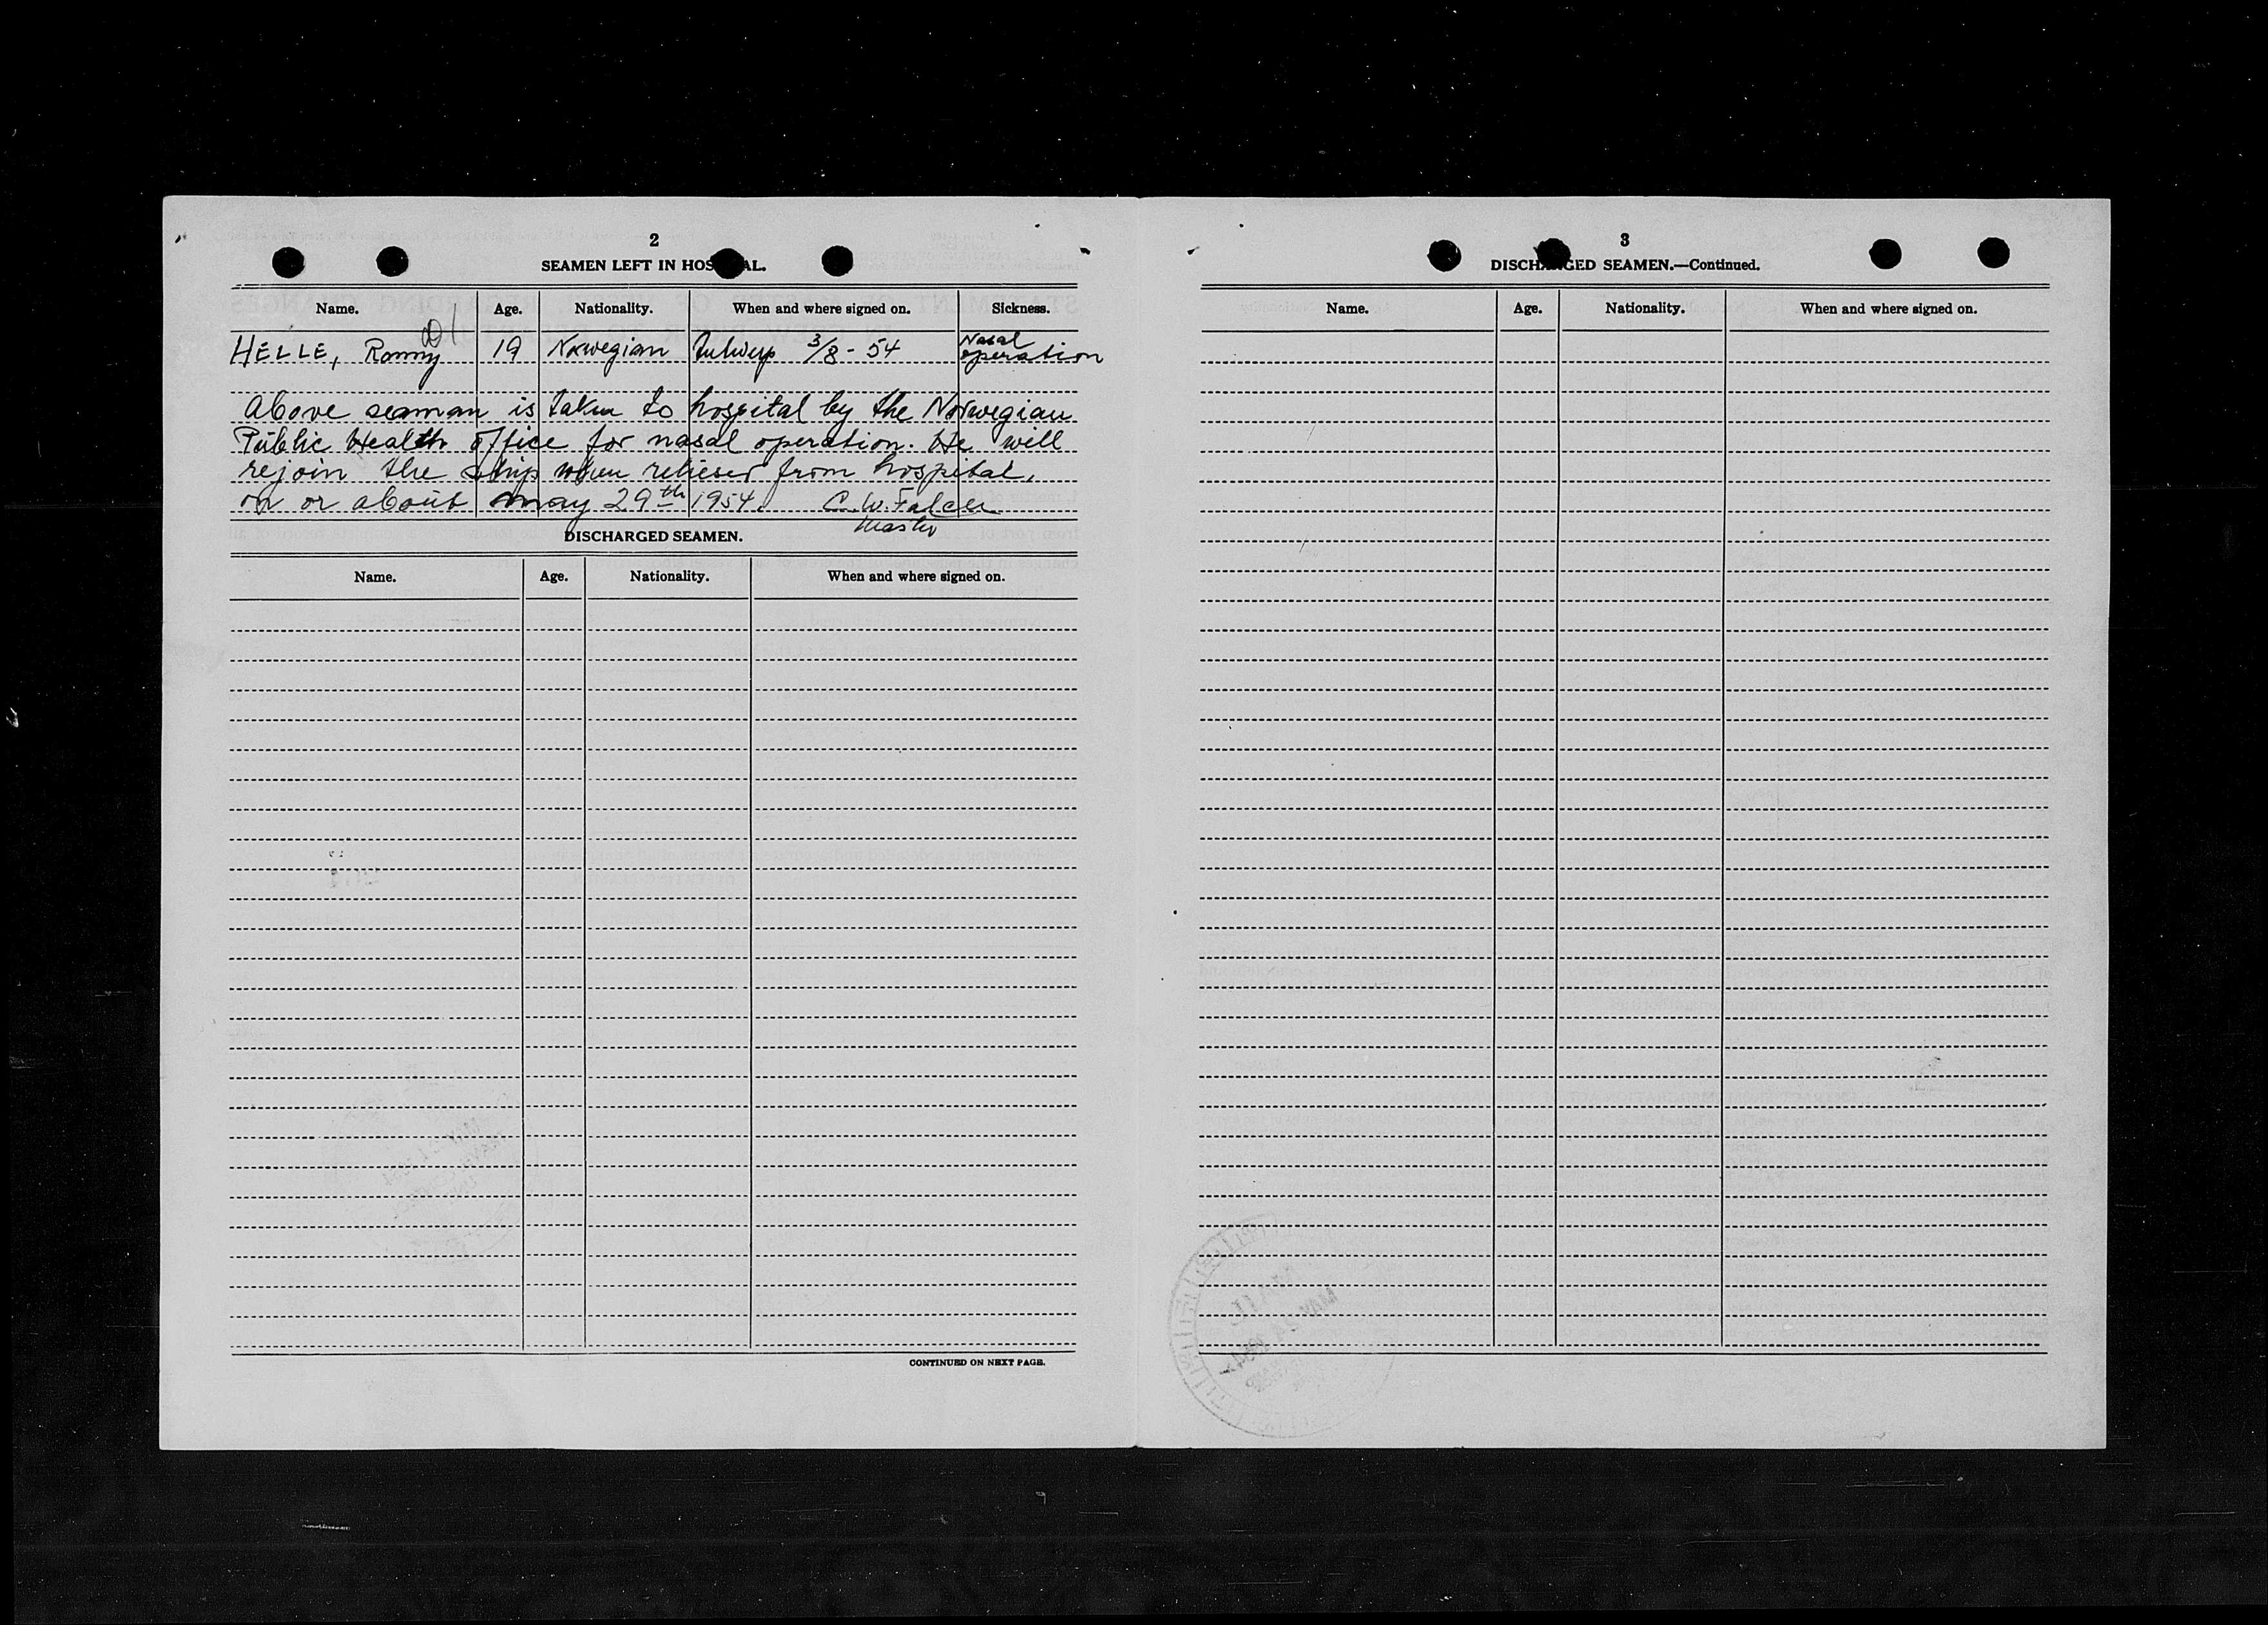 2
SEAMEN LEFT IN HOS AL.
Name. Age. Nationality. When and where signed on. Sickness.
HELLE, Ronny 19 Norwegian Antwerp 3/8 - 54 Nasal operation
Above seaman is taken to hospital by the Norwegian
Public Health office for nasal operation. He will
rejoin the ship when relieser from hospital,
on or about may 29th 1954. C.W. Falck
Master
DISCHARGED SEAMEN.
Name. Age. Nationality. When and where signed on.
CONTINUED ON NEXT PAGE.
3
DISCHARGED SEAMEN.—Continued.
Name. Age. Nationality. When and where signed on.